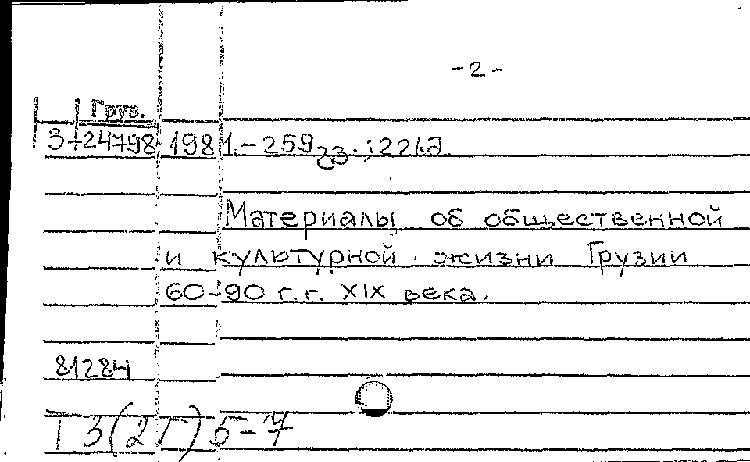 -2-
Груз.
3+24798 1981.-259 გვ.;22სმ.
Материалы об общественной
и культурной жизни Грузии
60-90 г.г. XIX века.
81284
Т3(2Г)5-7